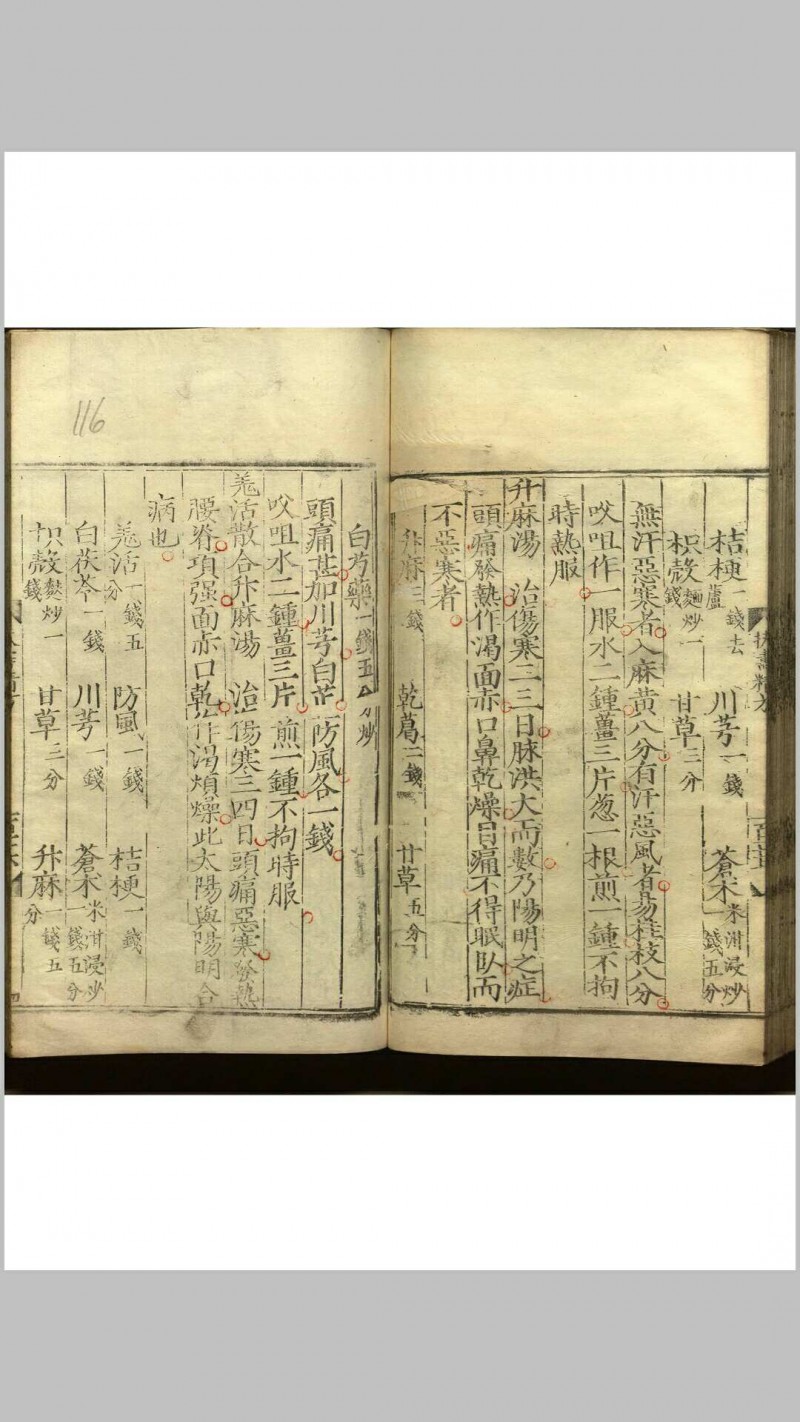 桔梗一錢去蘆 川芎一錢 蒼朮米泔浸炒一錢五分
枳殼麵炒一錢 甘草三分
無汗惡寒者入麻黃八分有汗惡風者易桂枝八分
㕮咀作一服水二鍾薑三片葱一根煎一鍾不拘
時熱服
升麻湯 治傷寒二三日脉洪大而數乃陽明之症
頭痛發熱作渴面赤口鼻乾燥目痛不得眠臥而
不惡寒者
升麻三錢 乾葛二錢 甘草五分
白芍藥一錢五分炒
頭痛甚加川芎白芷防風各一錢
㕮咀水二鍾薑三片煎一鍾不拘時服
羗活散合升麻湯 治傷寒三四日頭痛惡寒發熱
腰脊項强面赤口乾作渴煩燥此太陽與陽明合
病也
羗活一錢五分 防風一錢 桔梗一錢
白茯苓一錢 川芎一錢 蒼朮米泔浸炒一錢五分
枳殼麩炒一錢 甘草三分 升麻一錢五分
116